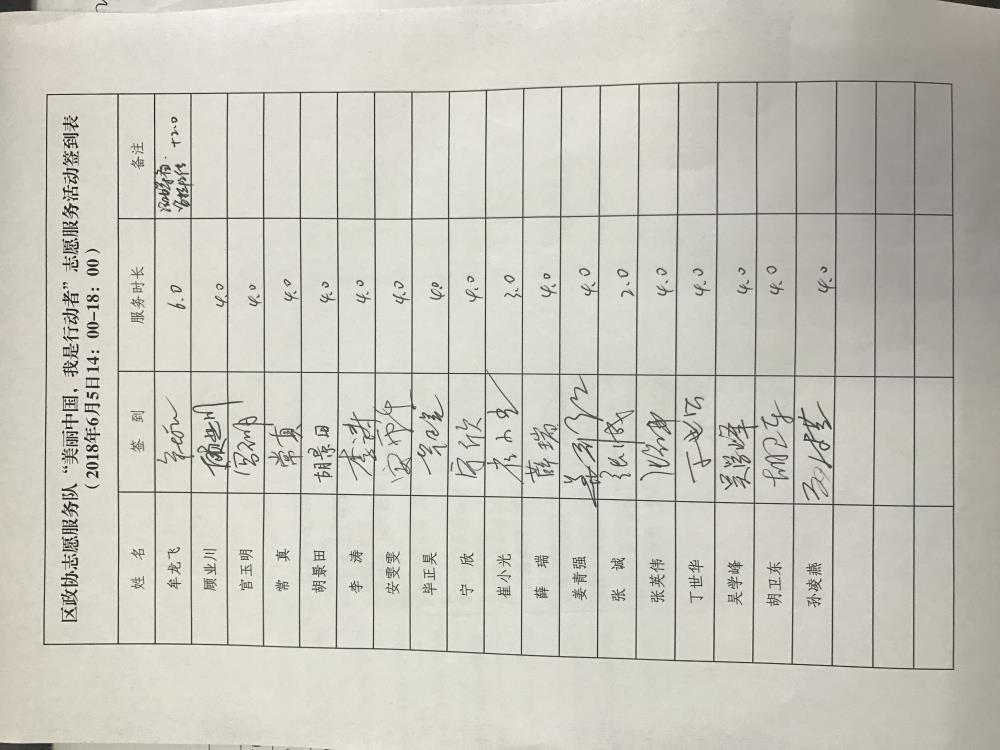 区政协志愿服务队“美丽中国，我是行动者”志愿服务活动签到表
（2018年6月5日14：00-18：00）
姓 名 签 到 服务时长 备注
牟龙飞 6.0 +2.0
顾业川 顾业川 4.0
官玉明 官玉明 4.0
常 真 常真 4.0
胡景田 胡景田 4.0
李 涛 李涛 4.0
安雯雯 安雯雯 4.0
毕正昊 4.0
宁 欣 宁欣 4.0
崔小光 崔小光 3.0
薛 瑞 薛瑞 4.0
姜青强 4.0
张 诚 张诚 2.0
张英伟 4.0
丁世华 丁世华 4.0
吴学峰 吴学峰 4.0
胡卫东 胡卫东 4.0
孙凌燕 孙凌燕 4.0